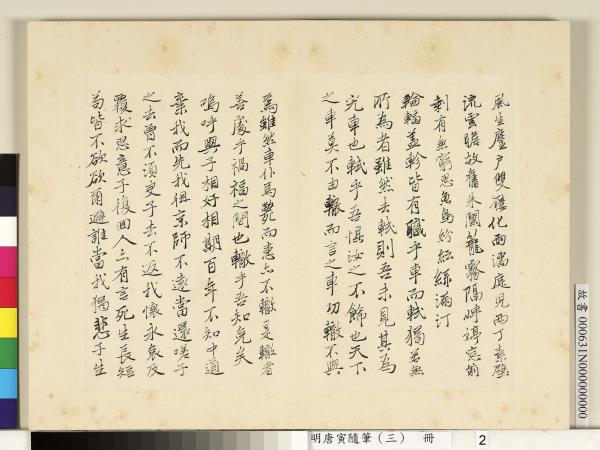 風生塵戶雙 化雨濡庭見兩丁素壁
流雲瞻故舊朱闌籠霧隔娉婷忘
剝有無窮思魚鳥紛紜綠滿汀
輪輻蓋軫皆有職乎車而軾獨若無
所為者雖然去軾則吾未見其為
完車也軾乎吾懼汝之不飾也天下
之車莫不由轍而言之車功轍不與
焉雖然車仆馬斃而患亦不轍是轍者
善處乎禍福之間也轍乎吾知免矣
嗚呼與子相好相期百年不知中道
棄我而先我徂京師不遠當還嗟子
之去曾不須臾子去不返我懷永哀反
覆求思意子復回人亦有言死生長短
苟皆不欲欲爾避誰當我獨悲子生
故書000631N000000000
明唐寅隨筆(三) 冊 2